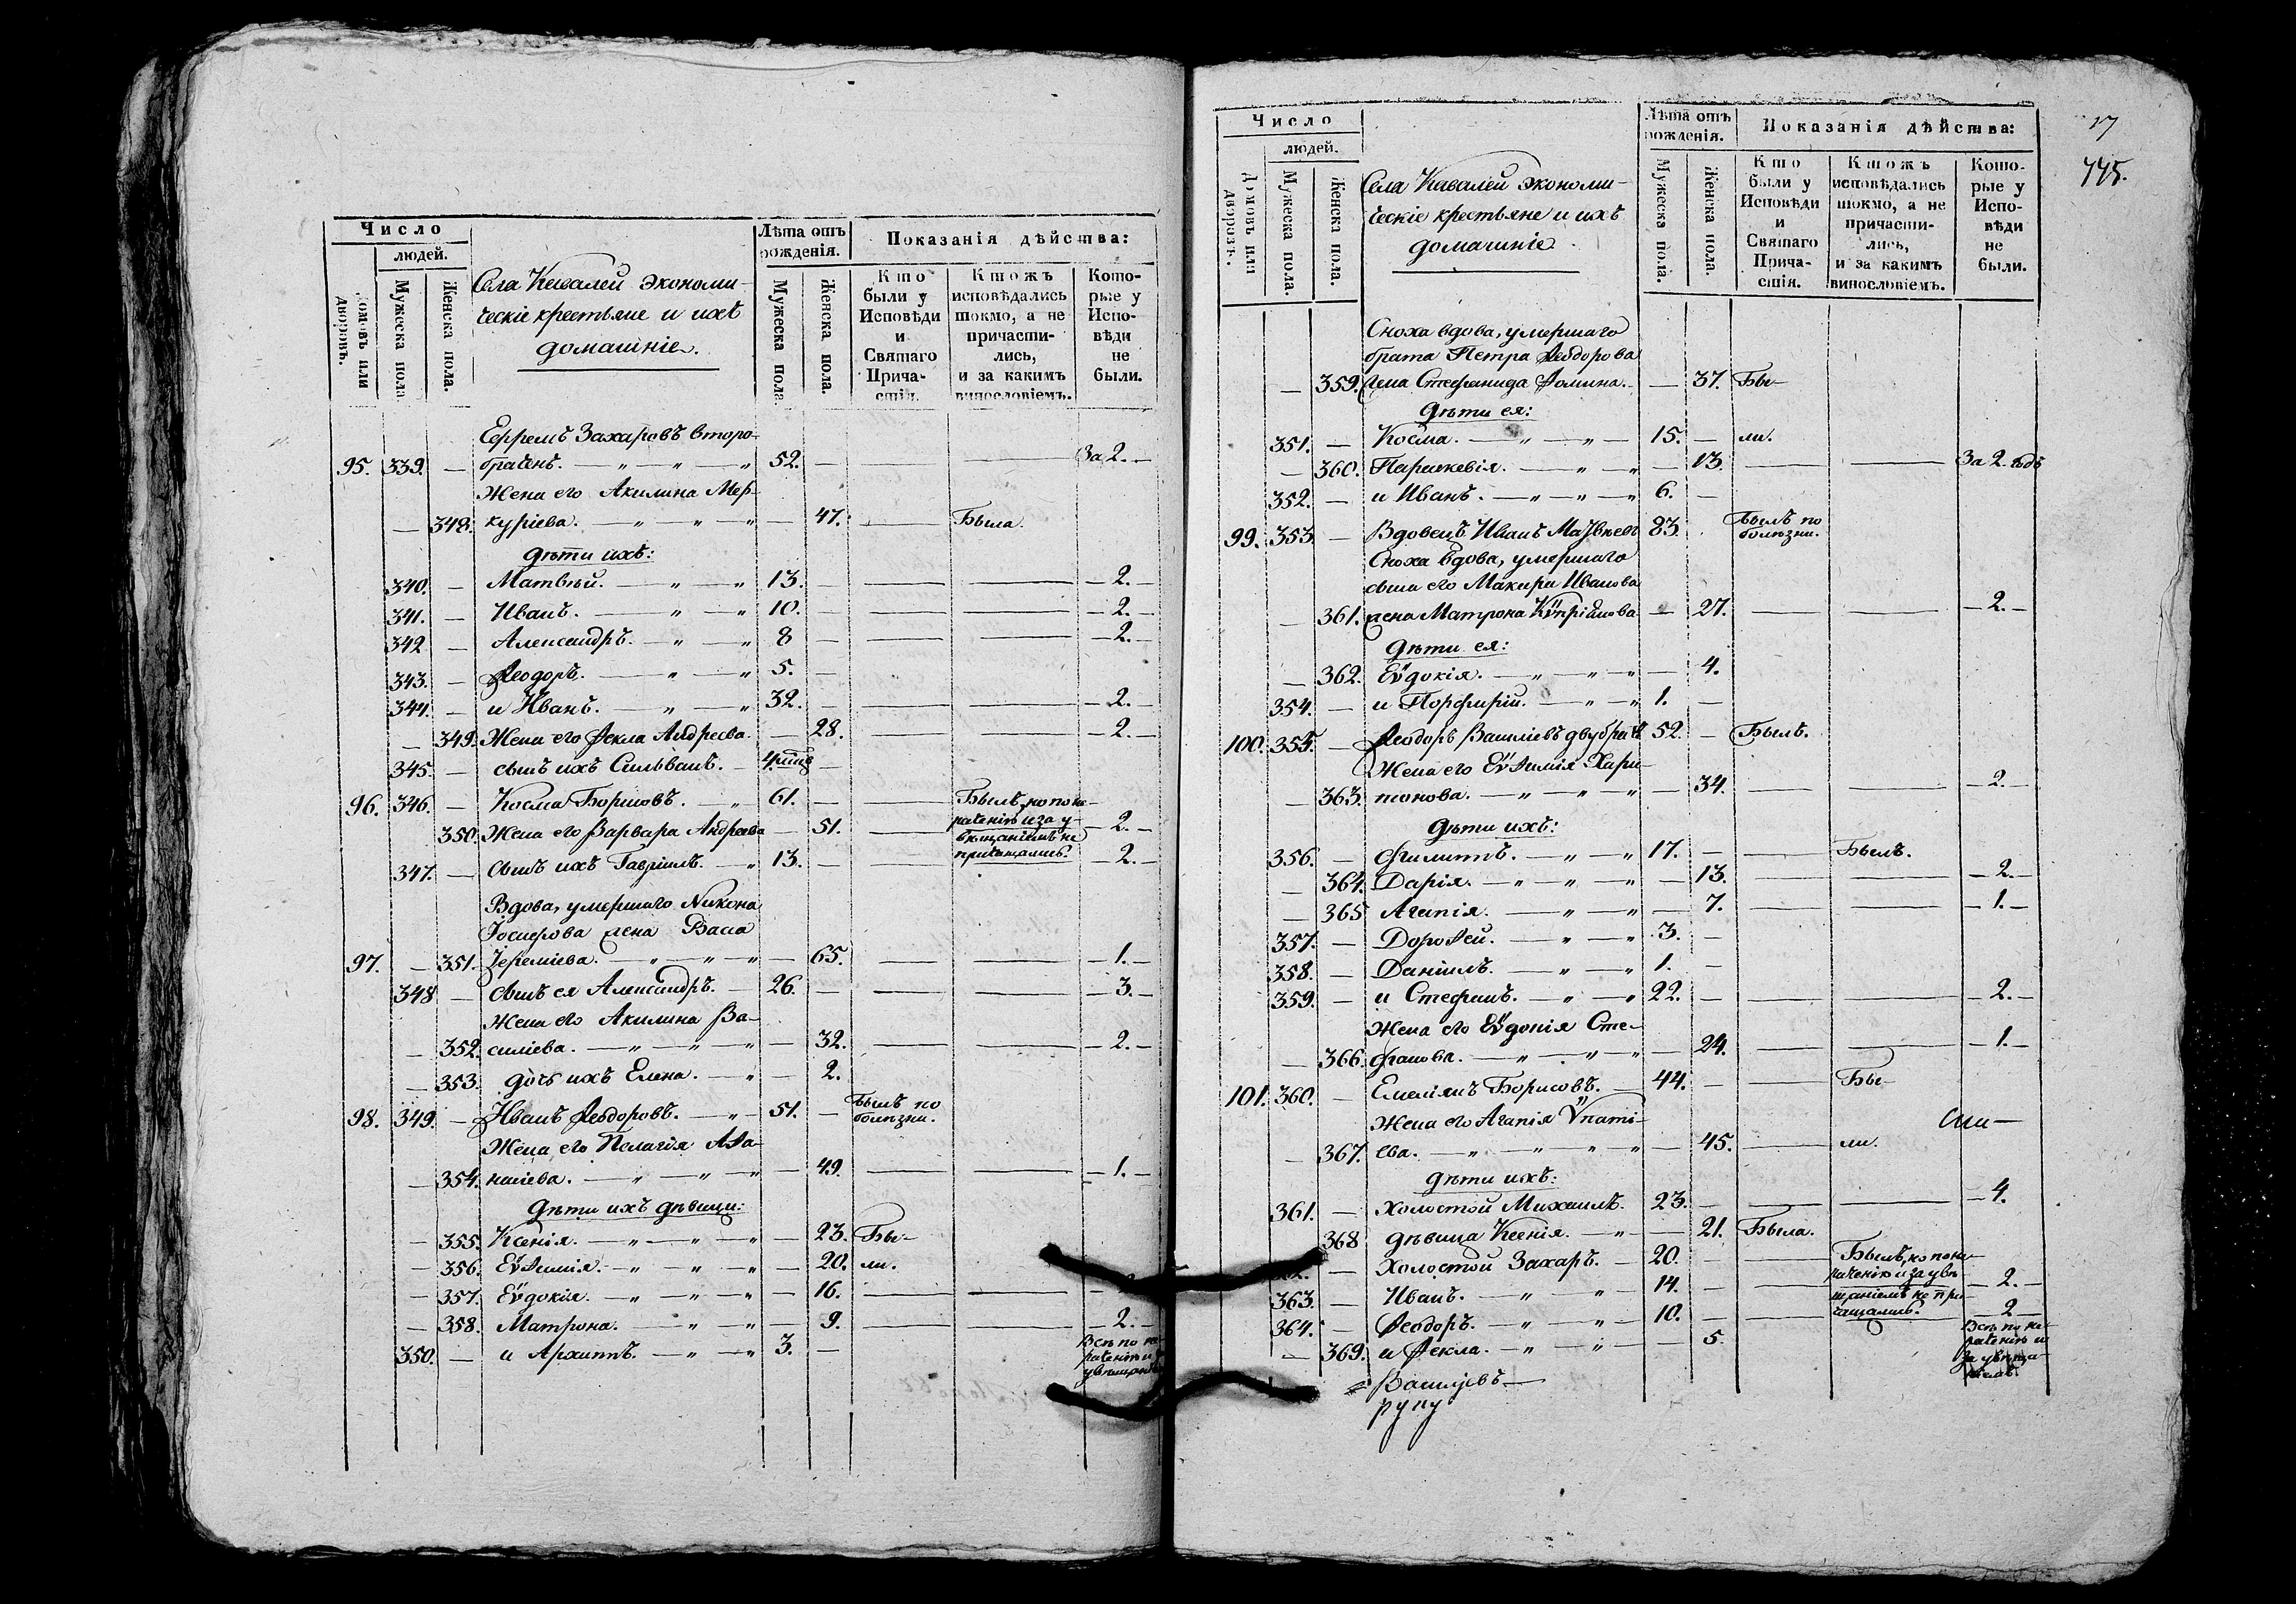 Число
людей.
Домовъ или дворовъ.
Мужеска пола.
Женска пола.
Села Кавалей Экономи-
ческіе крестьяне и ихъ
домашніе.
Лѣта отъ
рожденія.
Мужеска пола.
Женска пола.
Показанія дѣйства:
Кто
были у
Исповѣди
и
Святаго
Прича-
стія.
Ктожъ
исповѣдались
токмо, а не
причасти-
лись,
и за какимъ
винословіемъ.
Кото-
рые у
Испо-
вѣди
не
были.
Ефремъ Захаровъ второ-
95. 339. — браченъ. — " — " — " 52. — — — За 2. —
Жена его Акилина Мер-
— 348. куріева. — " — " — " — 47. — Была.
дѣти ихъ:
340. — Матвѣй. — " — " 13. — — — — 2. —
341. — Иванъ. — " — " 10. — — — — 2. —
342 — Александръ. — " — " 8 — — — — 2. —
343. — Ѳеодоръ. — " — " 5. —
344. — и Иванъ. — " — " 32. — — — — 2. —
— 349. Жена его Ѳекла Андреева. — 28. — — — 2. —
345. — сынъ ихъ Сильванъ. — 4. —
96. 346. — Косма Борисовъ. — " 61. — — Былъ, но по не-
раченію и за у-
350. Жена его Варвара Андреева — 51. — вѣщаніемъ не — 2. —
причащались.
347. — сынъ ихъ Гавріилъ. — " 13. — — — 2. —
Вдова, умершаго Никона
Іосифова жена Васса
97. — 351. Іереміева. — " — " — " — 65. — — — 1. —
348 — сынъ ея Александръ. — 26. — — — — 3. —
Жена его Акилина Ва-
— 352. силіева. — " — " — " — 32. — — — 2. —
— 353. дочь ихъ Елена. — " — 2.
98. 349. — Иванъ Ѳеодоровъ. — " — 51. — Былъ по
болѣзни.
Жена его Пелагія Аѳа-
— 354. насіева. — " — " — " — 49. — — — 1. —
дѣти ихъ дѣвицы:
— 355. Ксенія. — " — " — " — 23. Бы-
— 356. Еѵѳимія. — " — " — " — 20. ли.
— 357. Еѵдокія. — " — " — " — 16. — —
— 358. Матрона. — " — " — 9. — — — 2. —
350. — и Архиппъ. — " — " 3. — Всѣ по не-
раченію и
17
445.
Число
людей.
Домовъ или дворовъ.
Мужеска пола.
Женска пола.
Села Кавалей Экономи-
ческіе крестьяне и ихъ
домашніе.
Лѣта отъ
рожденія.
Мужеска пола.
Женска пола.
Показанія дѣйства:
Кто
были у
Исповѣди
и
Святаго
Прича-
стія.
Ктожъ
исповѣдались
токмо, а не
причасти-
лись,
и за какимъ
винословіемъ.
Кото-
рые у
Испо-
вѣди
не
были.
Сноха вдова, умершаго
брата Петра Ѳеодорова
— 359. жена Стефанида Ѳомина. — — 37. Бы-
дѣти ея:
351. — Косма. — " — " — 15. — ли.
— 360. Параскевія. — " — " — 13. — — За 2. годъ
352. — и Иванъ. — " — " — " 6. —
99. 353. — Вдовецъ Иванъ Матвѣевъ 83. Былъ по
болѣзни.
Сноха вдова, умершаго
сына его Макара Иванова
— 361. жена Матрона Кѵпріянова — 27. — — — 2. —
дѣти ея:
— 362. Еѵдокія. — " — " — " — 4.
354. — и Порфирій. — " — " 1. —
100. 355. — Ѳеодоръ Василіевъ двубрач. 52. — Былъ.
Жена его Еѵѳимія Хари-
— 363. тонова. — " — " — " — 34. — — — 2. —
дѣти ихъ:
356. — Филиппъ. — " — " 17. — — Былъ.
— 364. Дарія. — " — " — " — 13. — — — 2. —
— 365 Агапія. — " — " — 7. — — — 1. —
357. — Дороѳей. — " — " 3. —
358. — Даніилъ. — " — " 1. —
359. — и Стефанъ. — " — " 22. — — — — 2. —
Жена его Еѵдокія Сте-
— 366. фанова. — " — " — " — 24. — — — 1. —
101. 360. — Емеліянъ Борисовъ. — 44. — — Бы-
Жена его Агапія Ѵпаті-
— 367. ева. — " — " — " — " — 45. — ли.
дѣти ихъ:
361. — Холостой Михаилъ. 23. — — — — 4.
368 дѣвица Ксенія. — " — — 21. Была.
— Холостой Захаръ. — 20. — — Былъ, но по не-
раченію и за увѣ-
363. — Иванъ. — " — " — 14. — — щаніемъ не при- — 2. —
чащались.
364. — Ѳеодоръ. — " — " — 10. — — — 2 —
— 369. и Ѳекла. — " — " — — 5. Всѣ по не-
раченію и
за увѣща-
ніемъ.
Василіевъ —
руку